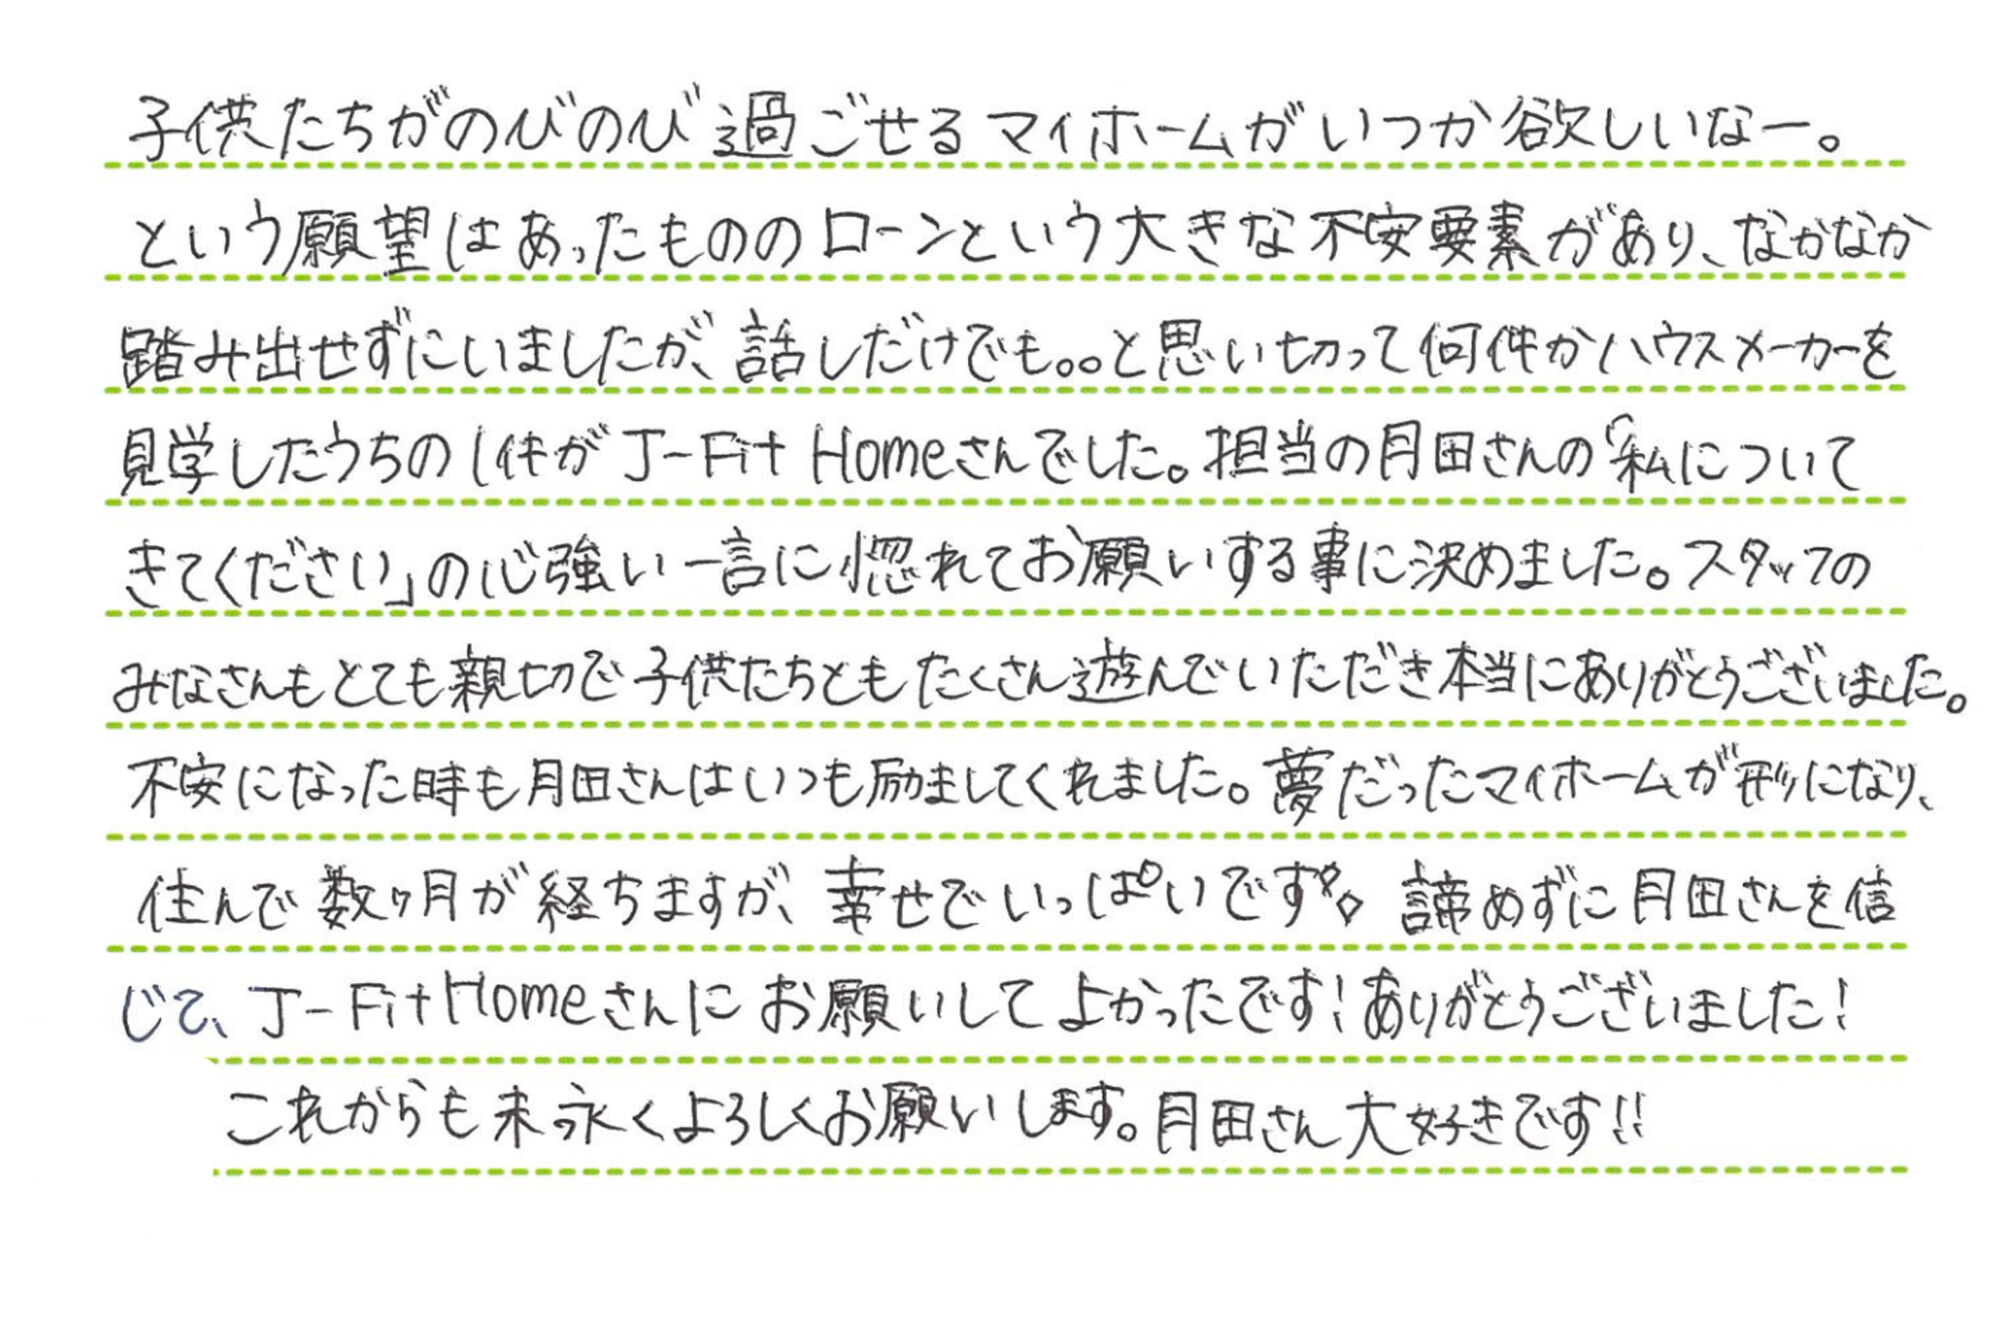 子供たちがのびのび過ごせるマイホームがいつか欲しいなー。
という願望はあったもののローンという大きな不安要素があり、なかなか
踏み出せずにいましたが、話しだけでも。。と思い切って何件かハウスメーカーを
見学したうちの1件がJ-Fit Homeさんでした。担当の月田さんの「私について
きてください」の心強い一言に惚れてお願いする事に決めました。スタッフの
みなさんもとても親切で子供たちともたくさん遊んでいただき本当にありがとうございました。
不安になった時も月田さんはいつも励ましてくれました。夢だったマイホームが形になり、
住んで数ヶ月が経ちますが、幸せでいっぱいです。諦めずに月田さんを信
じて、J-Fit Homeさんにお願いしてよかったです!ありがとうございました!
これからも末永くよろしくお願いします。月田さん大好きです!!